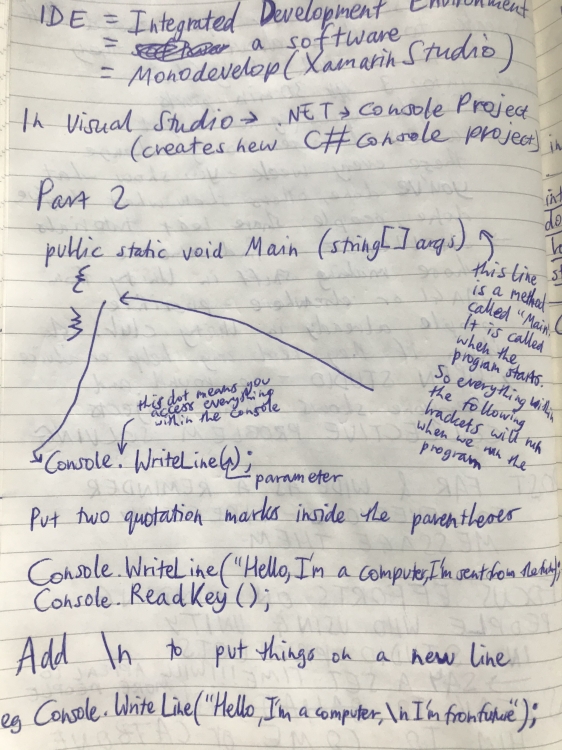 IDE = Integrated Development Environment
= a software
= Monodevelop (Xamarin Studio)
In Visual Studio → .NET → Console Project
(creates new C# console project)
Part 2
public static void Main (string[] args)
{
}
this line
is a method
called "Main.
It is called
when the
program starts.
So everything within
the following
brackets will run
when we run the
program
this dot means you
access everything
within the console
Console. WriteLine();
parameter
Put two quotation marks inside the
Console.WriteLine("Hello, I'm a computer, I'm sent from the
Console.ReadKey();
Add \n to put things on a new line
eg Console.WriteLine("Hello, I'm a computer, \n I'm from future");